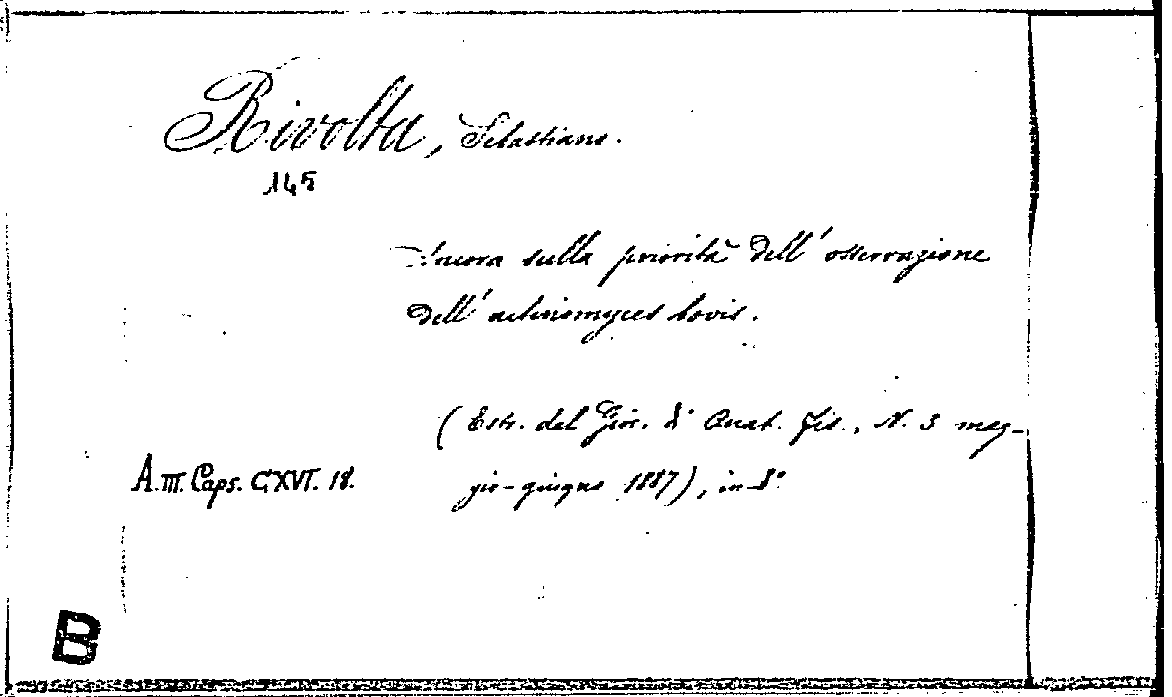 Rivolta, Sebastiano.
145
Ancora sulla priorità dell'osservazione
dell'actinomyces bovis.
(Estr. dal Gior. d' Anat. Fis., N. 3 mag-
A. III. Caps. CXVI. 18.
gio-giugno 1887), in-8°
B